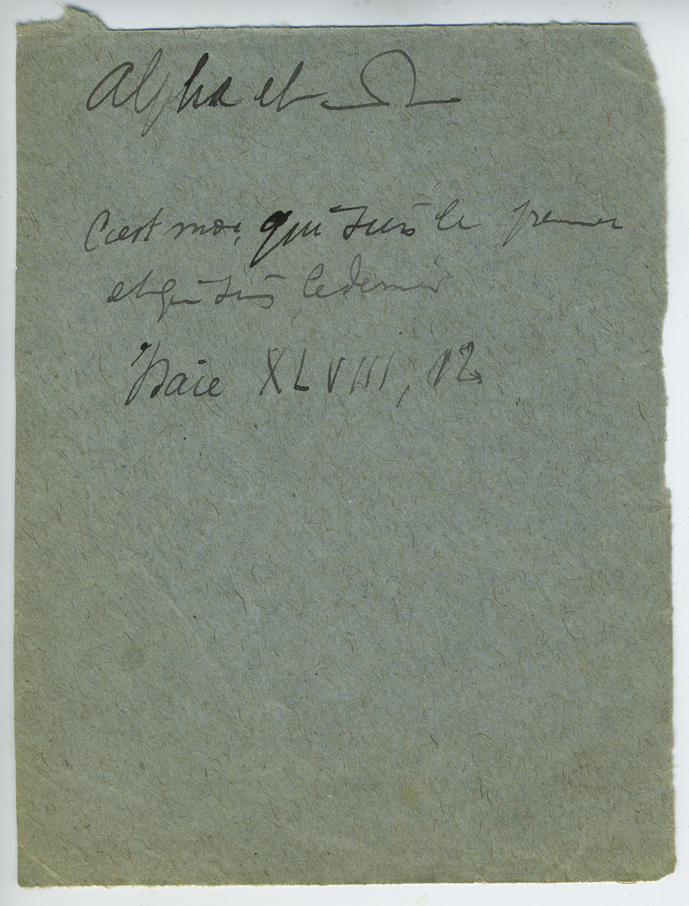 Alpha et Ω
C'est moi, qui suis le premier
et qui suis le dernier
Isaïe XLVIII, 12